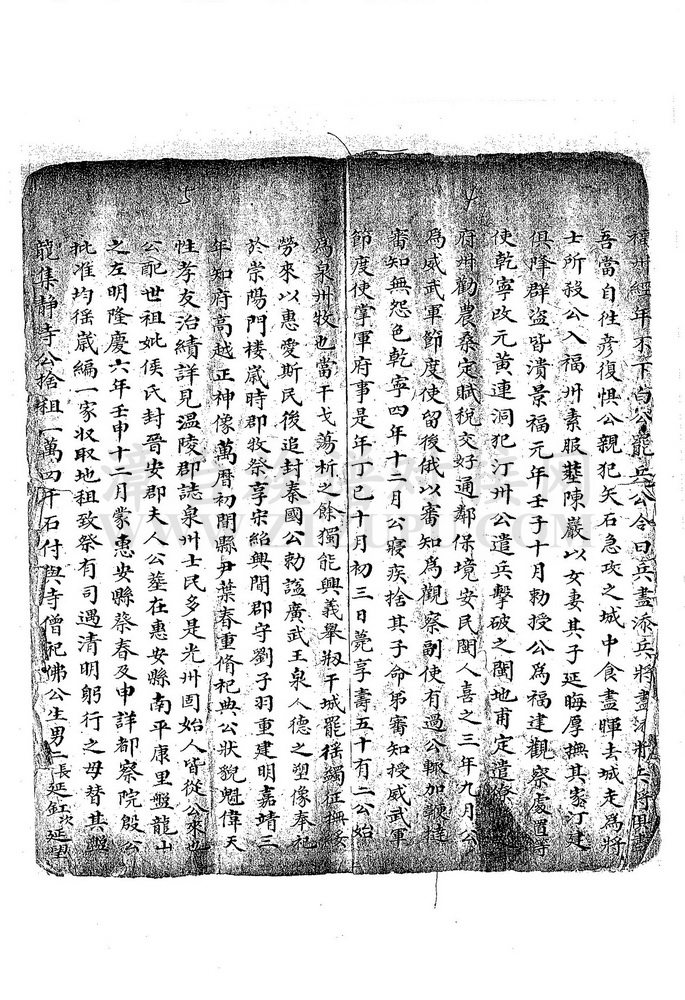 4
福州經年不下白公罷兵公令曰兵盡添兵將盡添將兵將俱盡
吾當自徃彦復惧公親犯矢石急攻之城中食盡暉去城走為將
士所殺公入福州素服塟陳巖以女妻其子延晦厚撫其家汀建
俱降群盜皆潰景福元年壬子十月勅授公為福建觀察處置等
使乾寧改元黄連洞犯汀州公遣兵擊破之閩地甫定遣條
府州勸農桑定賦稅交好通鄰保境安民閩人喜之三年九月公
為威武軍節度使留後俄以審知為觀察副使有過公輙加鞭撻
審知無怨色乾寧四年十二月公寝疾捨其子命弟審知授威武軍
節度使掌軍府事是年丁巳十月初三日薨享壽五十有二公始
5
為泉州牧也當干戈蕩析之餘獨能興義舉淑干城罷徭蠲征撫安
勞來以惠愛斯民後追封秦國公勅諡廣武王泉人德之塑像奉祀
於崇陽門楼歲時郡牧祭享宋紹興間郡守劉子羽重建明嘉靖三
年知府高越正神像萬暦初閒縣尹葉春重脩祀典公狀貌魁偉天
性孝友治績詳見温陵郡誌泉州士民多是光州固始人皆從公來也
公配世祖妣侯氏封晉安郡夫人公塟在惠安縣南平康里盤龍山
之左明隆慶六年壬申十二月蒙惠安縣蔡春及申詳都察院殷公
批准均徭歲編一家収取地租致祭有司遇清明躬行之毋替其盤
龍集静寺公捨租一萬四仟石付與寺僧祀佛公生男二長延釭次延望